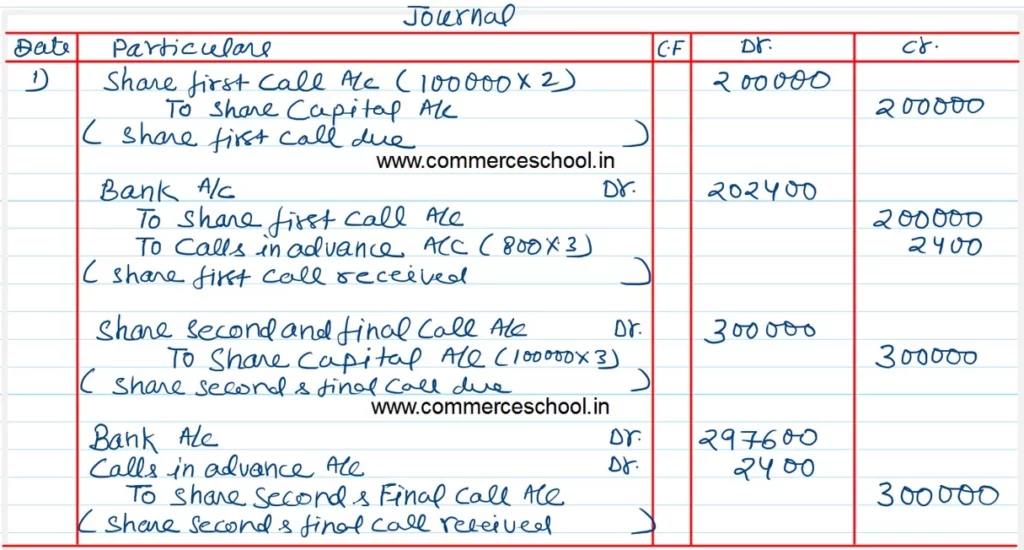 Journal
Date Particulars C.F Dr. Cr.
1) Share first Call A/c (100000 X 2) 200000
To Share Capital A/c 200000
( Share first call due )
www.commerceschool.in
Bank A/c Dr. 202400
To Share first Call A/c 200000
To Calls in advance A/C (800 X 3) 2400
( Share first Call received )
Share Second and final Call A/c Dr. 300000
To Share Capital A/c (100000 X 3) 300000
( Share second & final Call due )
www.commerceschool.in
Bank A/c Dr. 297600
Calls in advance A/c Dr. 2400
To Share Second & Final Call A/c 300000
( Share Second & final Call received )